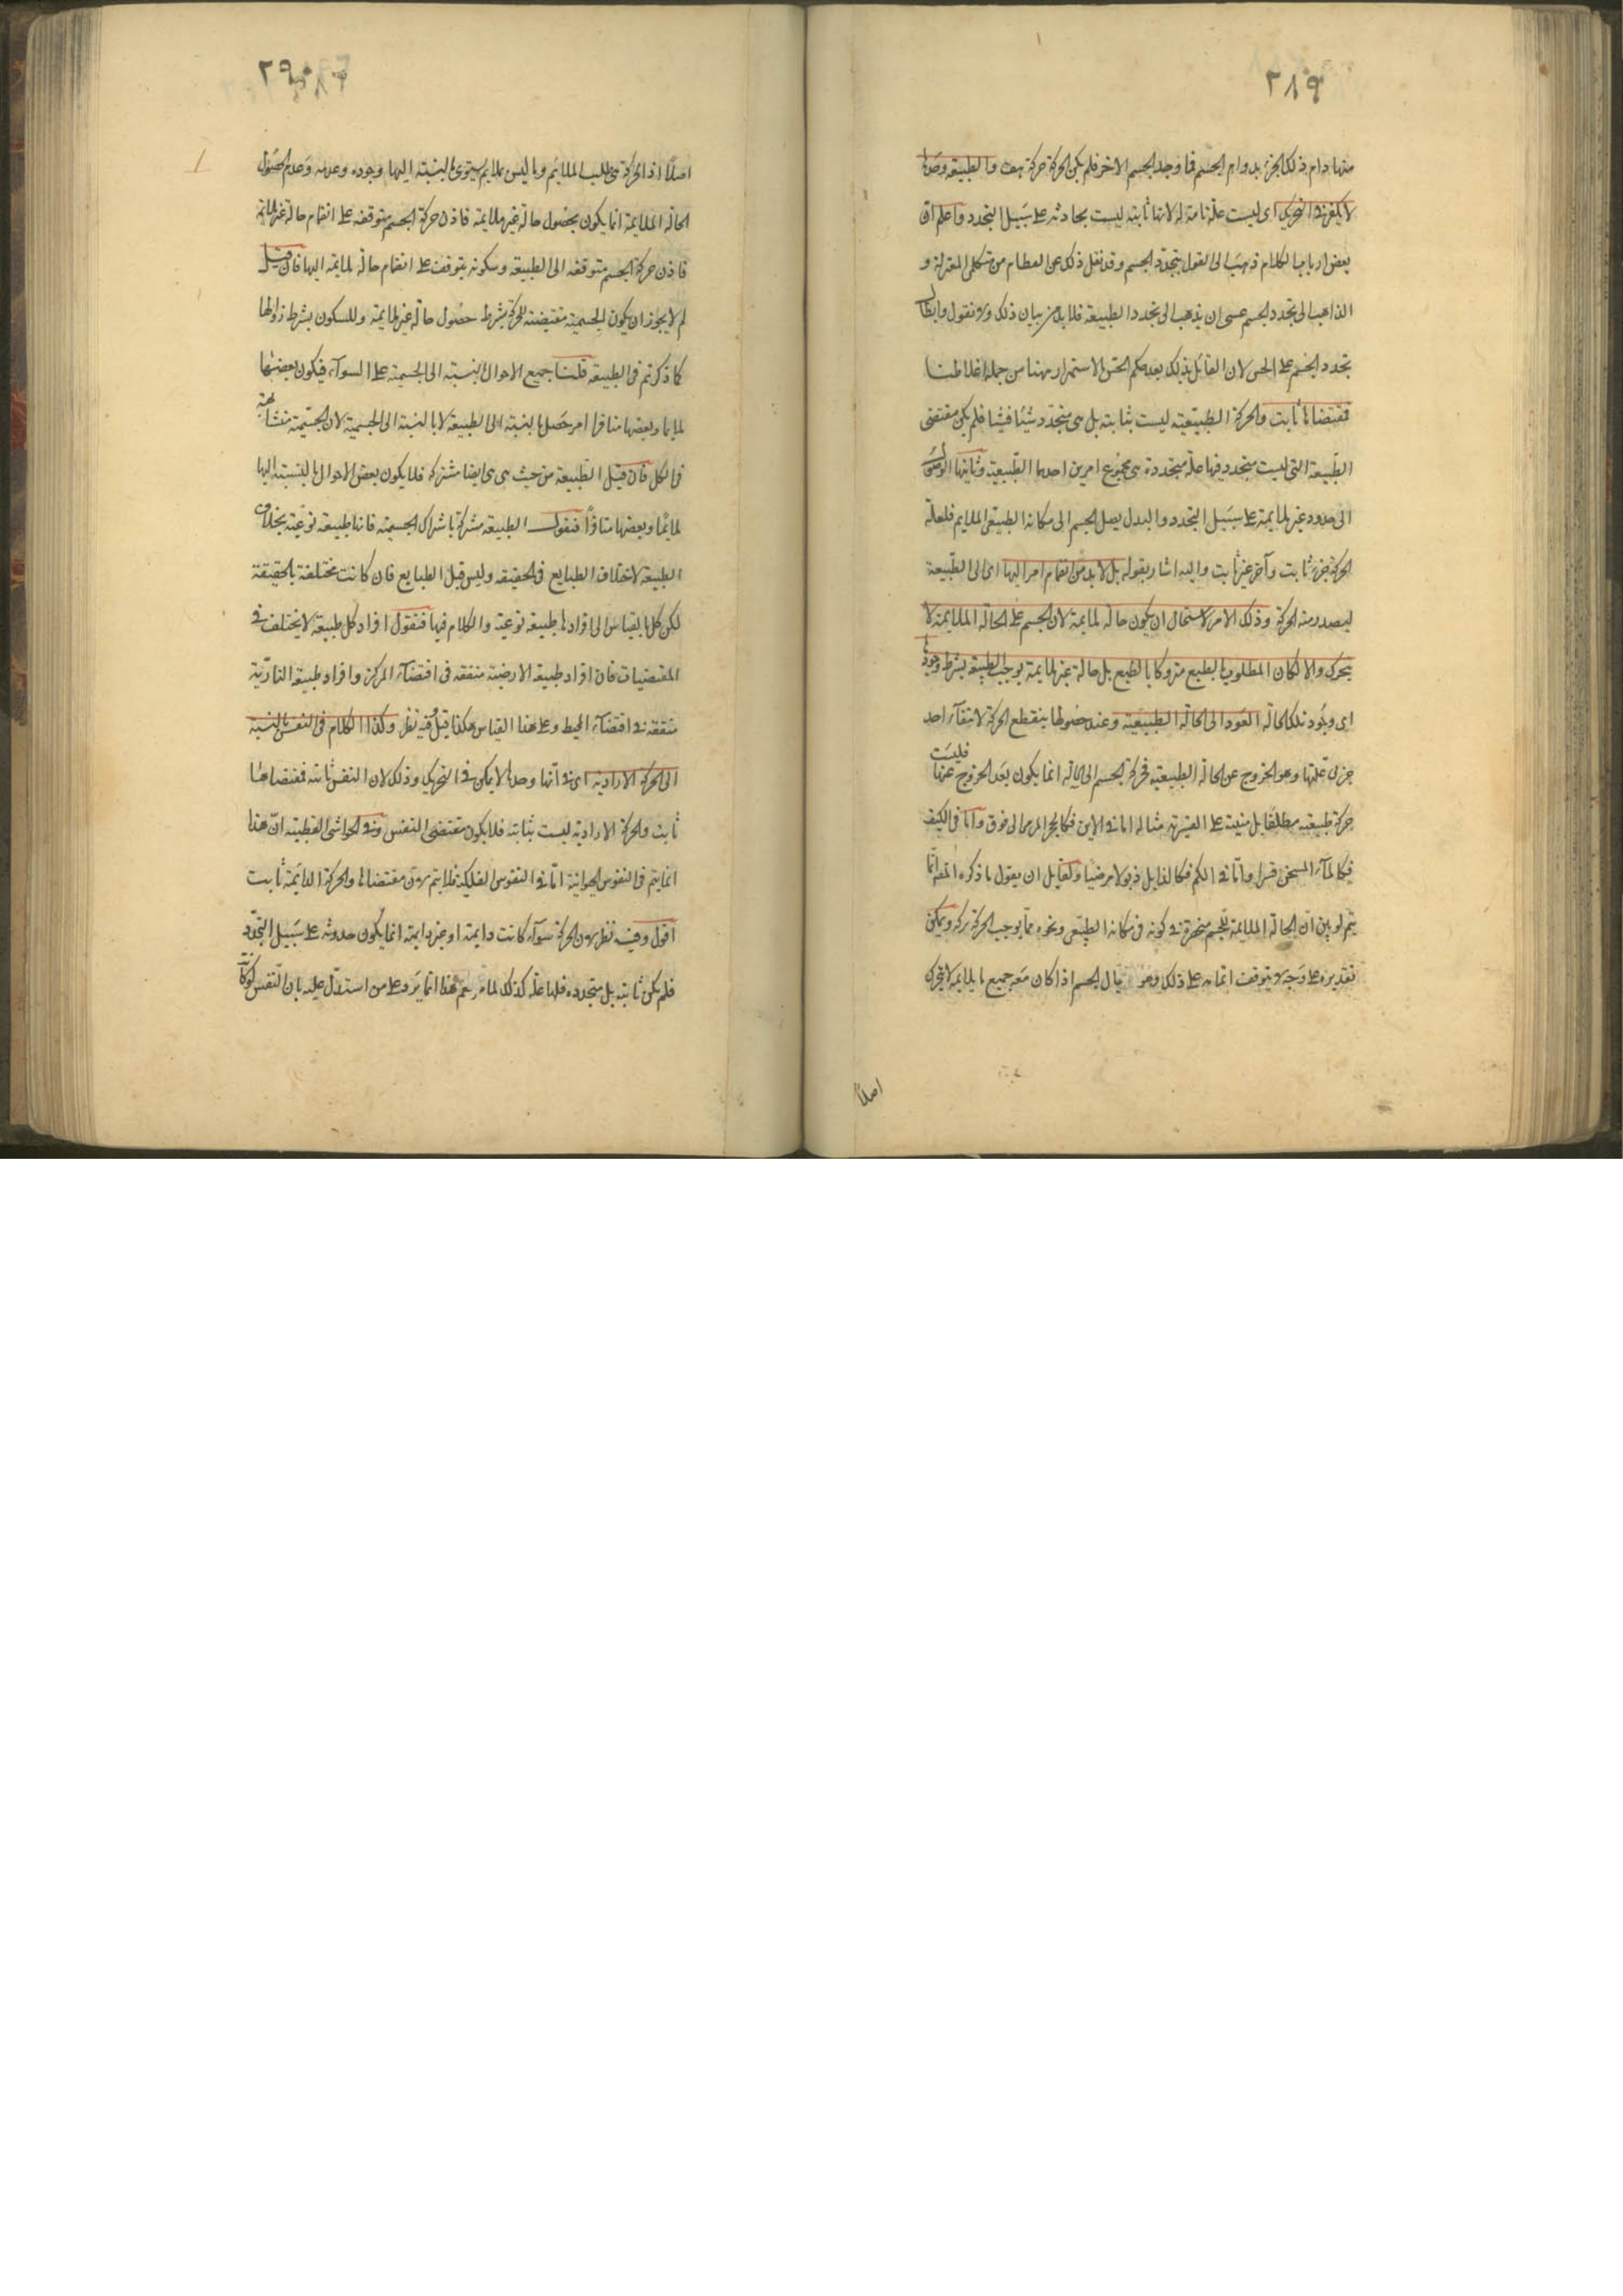 ٢٨٩
منها دام ذلك الجزء بدوام الجسم فما وجد الجسم الاخر فلم يكن الحركة حركة هف والطبيعة وحدها
لا يكفى فى التحريك اى ليست علة تامة له لانها ثابتة ليست بحادثة على سبيل التجدد واعلم ان
بعض ارباب الكلام ذهب الى القول بتجدد الجسم وقد نقل ذلك عن العظام من متكلمى المعتزلة و
الذاهب الى تجدد الجسم عسى ان يذهب الى تجدد الطبيعة فلا بد من بيان ذلك ونقول وابطال
تجدد الجسم على الحس لان القائل بذلك بعد حكم الحس الاستمرار ههنا من جملة اغلاطنا
فمقتضاها ثابت والحركة الطبيعية ليست بثابتة بل هى متجدد شيئا فشيئا فلم يكن مقتضى
الطبيعة التى ليست متجدد فيها علة متجددة هى مجموع امرين احدها الطبيعية وثانيها الوصول
الى حدود غير ملايمة على سبيل التجدد والبدل يصل الجسم الى مكانه الطبيعى الملايم فلعلة
الحركة جزء ثابت وآخر غير ثابت واليه اشار بقوله بل لا بد من انضمام امر اليها اى الى الطبيعة
ليصدر منه الحركة وذلك الامر لاستحال ان يكون حالة ملايمة لان الجسم على الحالة الملايمة لا
يتحرك والا لكان المطلوب بالطبع متروكا بالطبع بل حالة غير ملايمة يوجب الطبيعة بشرط وجودها
اى وجود تلك الحالة العود الى الحالة الطبيعية وعند حصولها ينقطع الحركة لانتفآء احد
جزئى علتها وهو الخروج عن الحالة الطبيعية فحركة الجسم الى الحالة انما يكون بعد الخروج عنها فليست
حركة طبيعية مطلقا بل مبنية على القسرية مثاله اما فى الاين فكالحجر المرمى الى فوق واما فى الكيف
فكالمآء المسخن قسرا واما فى الكم فكالذابل ذبولا مرضيا ولقايل ان يقول ما ذكره المصـ انما
يتم لو بين ان الحالة الملايمة للجسم منحصرة فى كونه فى مكانه الطبيعى ونحوه مما يوجب الحركة تركه ويمكن
تقديره على وجه لا يتوقف اتمامه على ذلك وهو يقال الجسم اذا كان معه جميع ما يلايمه لا يتحرك
اصلا
٢٩٠
اصلا اذ الحركة هى طلب الملايم وما ليس بملايم يستوى بالنسبة اليها وجوده وعدمه وعدم حصول
الحالة الملايمة انما يكون بحصول حالة غير ملايمة فاذن حركة الجسم متوقفة على انضمام حالة غير ملايمة
فاذن حركة الجسم متوقفة الى الطبيعة وسكونه يتوقف على انضمام حالة ملايمة اليها فان قيل
لم لا يجوز ان يكون الجسمية مقتضية للحركة بشرط حصول حالة غير ملايمة وللسكون بشرط زوالها
كما ذكرتم فى الطبيعة قلنا جميع الاحوال بالنسبة الى الجسمية على السوآء فيكون بعضها
ملايما وبعضها منافرا امر حصل بالنسبة الى الطبيعة لا بالنسبة الى الجسمية لان الجسمية متشابهة
فى الكل فان قيل الطبيعة من حيث هى هى ايضا مشتركة فلا يكون بعض الاحوال بالنسبة اليها
ملايما وبعضها منافرا فنقول الطبيعة مشتركة باشتراك الجسمية فانها طبيعة نوعية بخلاف
الطبيعة لاختلاف الطبايع فى الحقيقة وليس قبل الطبايع فان كانت مختلفة بالحقيقة
لكن كل بالقياس الى افرادها طبيعة نوعية والكلام فيها فنقول افراد كل طبيعة لا يختلف فى
المقتضيات فان افراد طبيعة الارضية متفقة فى اقتضآء المركز وافراد طبيعة النارية
متفقة فى اقتضآء المحيط وعلى هذا القياس هكذا قيل وفيه نظر وكذا الكلام فى النفس بالنسبة
الى الحركة الارادية اى فى انها وحدها لا يكفى فى التحريك وذلك لان النفس ثابتة فمقتضاها
ثابت والحركة الارادية ليست بثابتة فلا يكون مقتضى النفس وفى الحواشى القطبية ان هذا
انما يتم فى النفوس الحيوانية اما فى النفوس الفلكية فلا يتم لان مقتضاها والحركة الدايمة ثابت
اقول وفيه نظر لان الحركة سوآء كانت دايمة او غير دايمة انما يكون حدوثه على سبيل التجدد
فلم يكن ثابتة بل متجددة فلها علة كذلك لما مر نعم هذا انما يرد على من استدل عليه بان النفس لو كانت